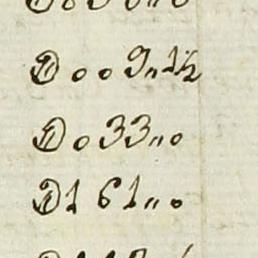 D 0 0 9„ 1½
D 0 33„ 0
D 1 61„ 0